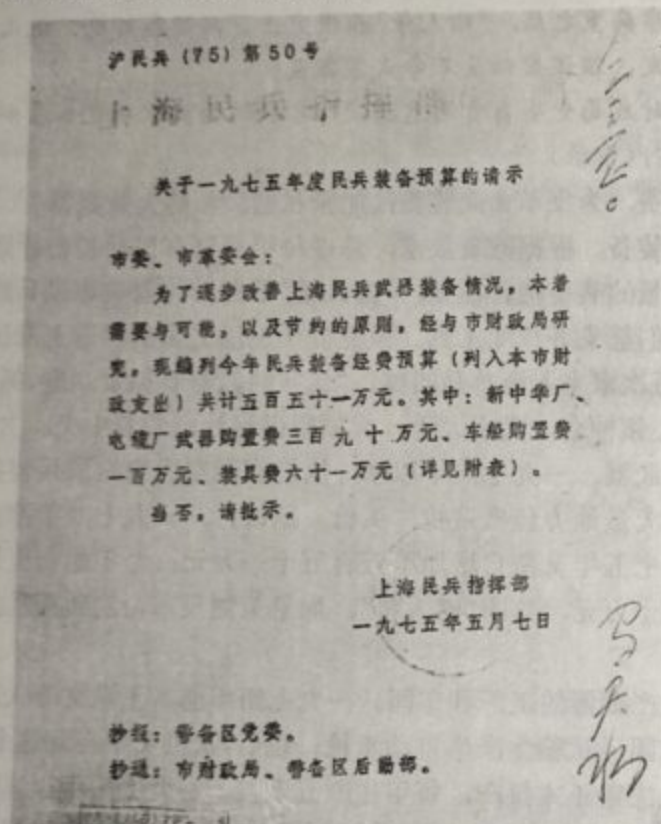 沪民兵(75)第50号
关于一九七五年度民兵装备预算的请示
市委、市革委会：
为了逐步改善上海民兵武器装备情况，本着
需要与可能，以及节约的原则，经与市财政局研
究，现编列今年民兵装备经费预算(列入本市财
政支出)共计五百五十一万元。其中：新中华厂、
电缆厂武器购置费三百九十万元、车船购置费
一百万元、装具费六十一万元(详见附表)。
当否，请批示。
上海民兵指挥部
一九七五年五月七日
抄报：警备区党委。
抄送：市财政局、警备区后勤部。